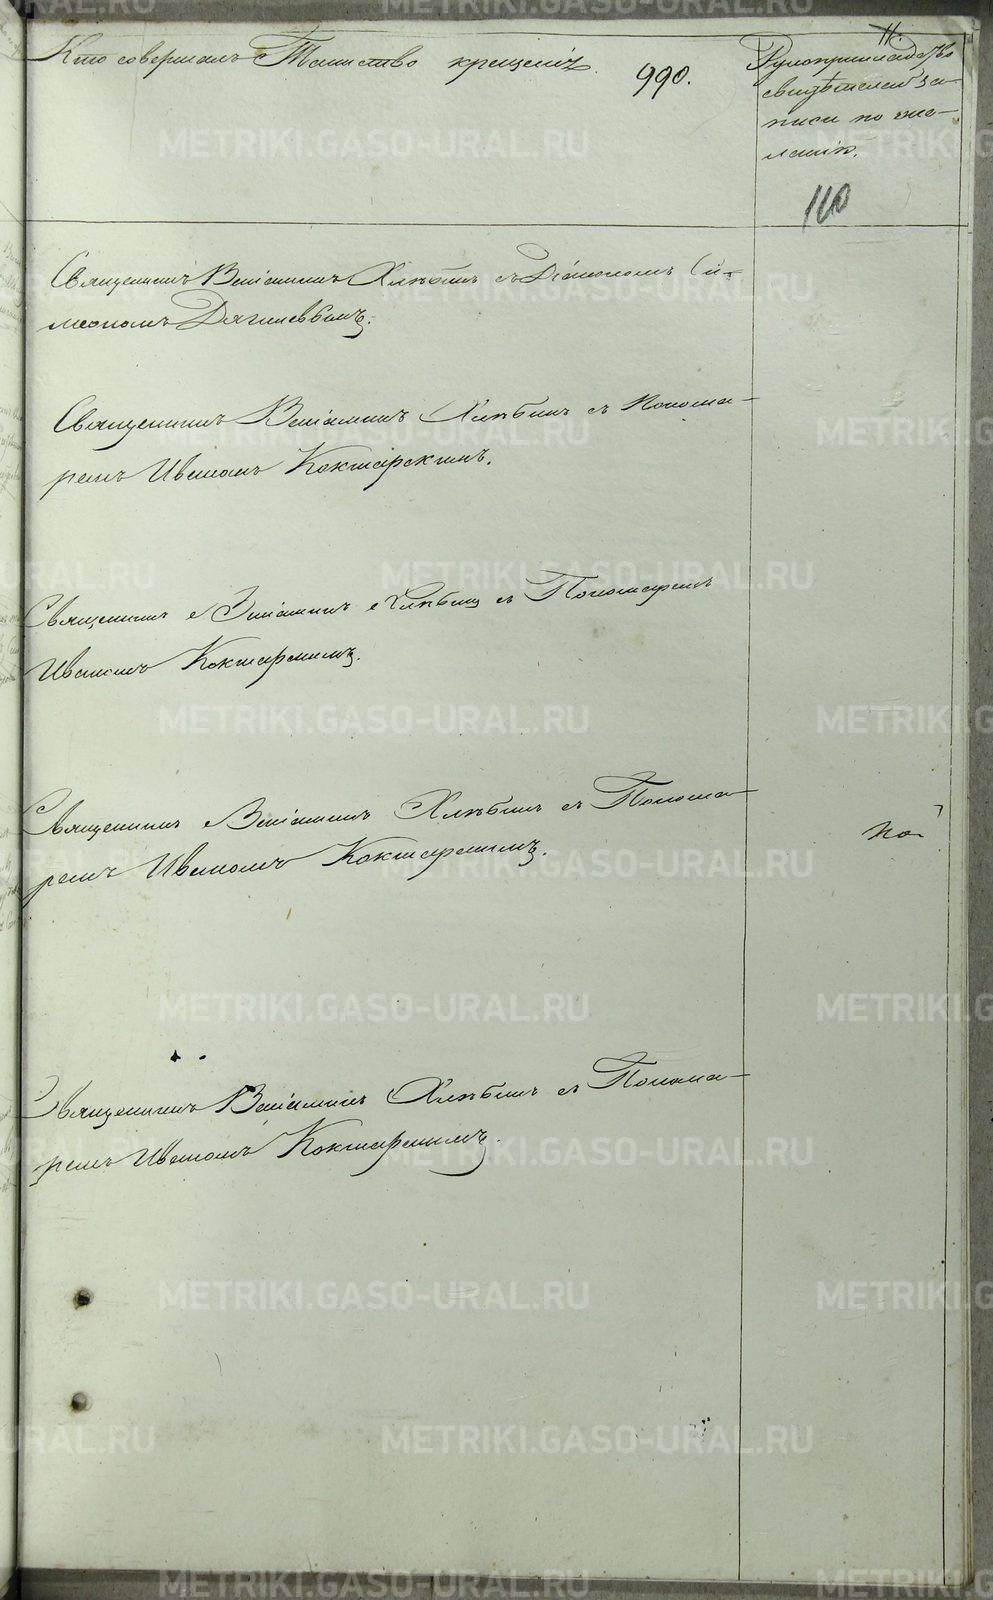 11.
Кто совершалъ Таинство крещенія.
990.
Рукоприкладство
свидѣтелей за-
писи по же-
ланію.
110
Священникъ Веніаминъ Хлѣбинъ съ Діакономъ Си-
меономъ Дягилевымъ.
Священникъ Веніаминъ Хлѣбинъ съ Понома-
ремъ Иваномъ Кокшарскимъ.
Священникъ Веніаминъ Хлѣбинъ съ Пономаремъ
Иваномъ Кокшарскимъ.
Священникъ Веніаминъ Хлѣбинъ съ Понома-
ремъ Иваномъ Кокшарскимъ.
по
Священникъ Веніаминъ Хлѣбинъ съ Понома-
ремъ Иваномъ Кокшарскимъ.
METRIKI.GASO-URAL.RU